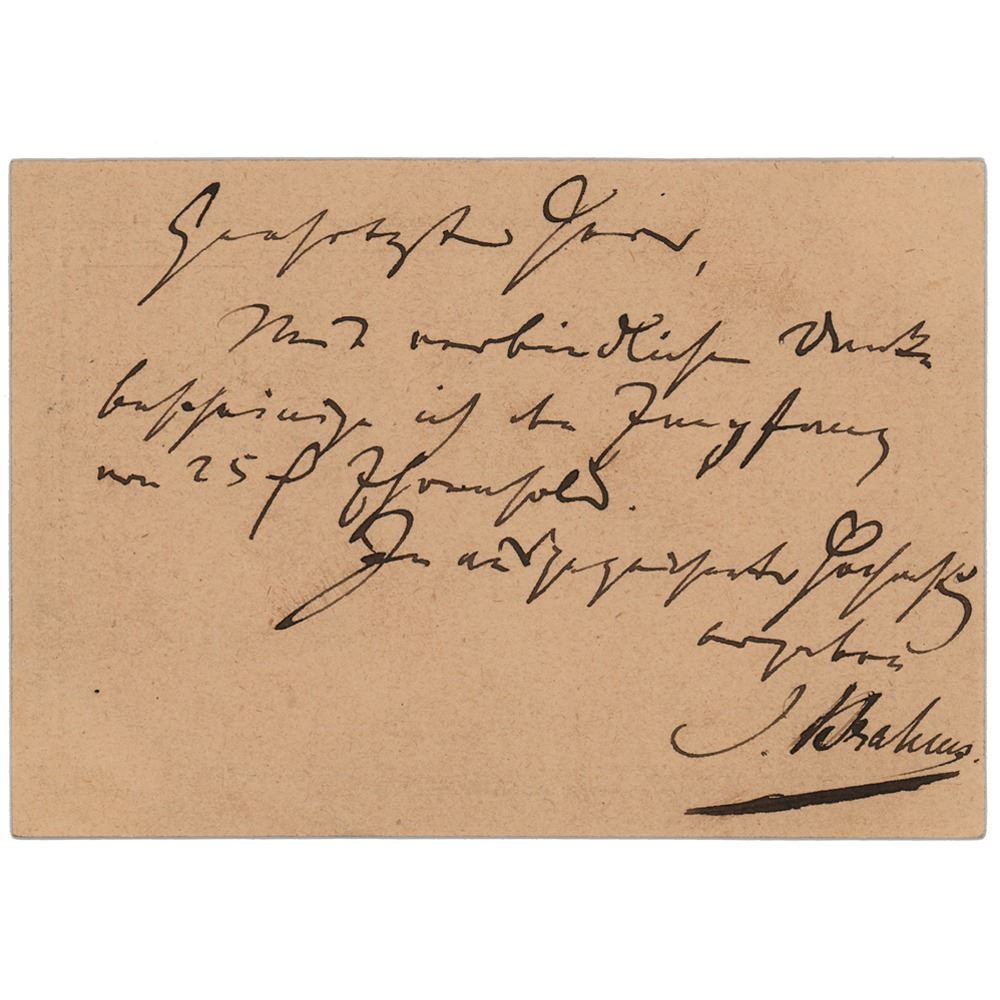 Geschätzter Herr,
Mit verbindlichem Danke
bescheinige ich den Empfang
von 25 f Ehrensold.
In ausgezeichneter Hochachtg
ergeben
J. Brahms.